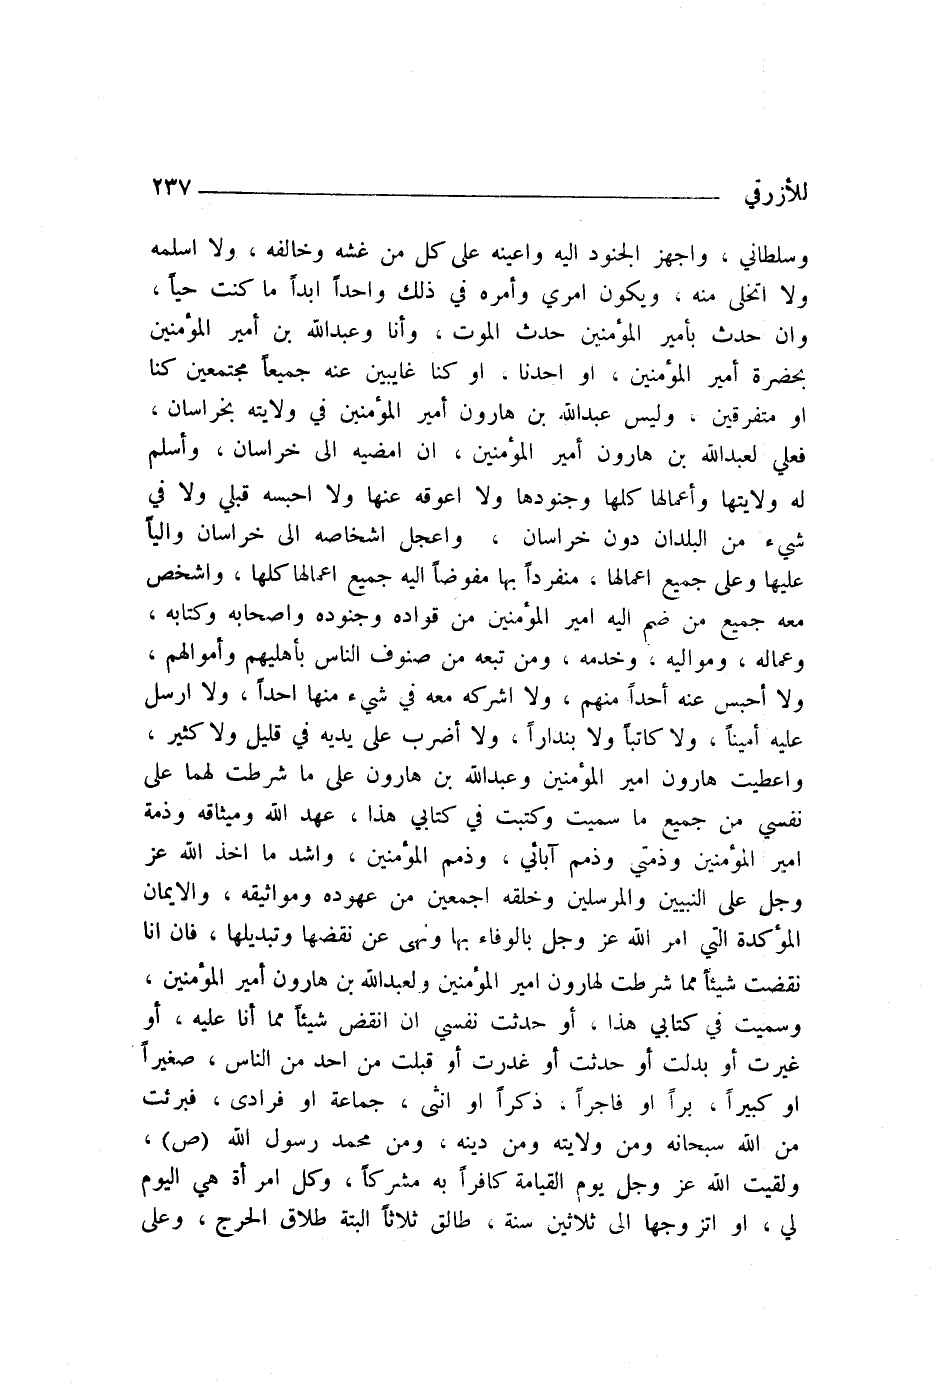 للأزرقي ٢٣٧
وسلطاني ، واجهز الجنود اليه واعينه على كل من غشه وخالفه ، ولا اسلمه
ولا اتخلى منه ، ويكون امري وأمره في ذلك واحداً ابداً ما كنت حياً ،
وان حدث بأمير المؤمنين حدث الموت ، وأنا وعبدالله بن أمير المؤمنين
بحضرة أمير المؤمنين ، او احدنا . او كنا غايبين عنه جميعاً مجتمعين كنا
او متفرقين . وليس عبدالله بن هارون أمير المؤمنين في ولايته بخراسان ،
فعلي لعبدالله بن هارون أمير المؤمنين ، ان امضيه الى خراسان ، وأسلم
له ولايتها وأعمالها كلها وجنودها ولا اعوقه عنها ولا احبسه قبلي ولا في
شيء من البلدان دون خراسان ، واعجل اشخاصه الى خراسان والياً
عليها وعلى جميع اعمالها ، منفرداً بها مفوضاً اليه جميع اعمالها كلها ، واشخص
معه جميع من ضم اليه امير المؤمنين من قواده وجنوده واصحابه وكتابه ،
وعماله ، ومواليه ، وخدمه ، ومن تبعه من صنوف الناس بأهليهم وأموالهم ،
ولا أحبس عنه أحداً منهم ، ولا اشركه معه في شيء منها احداً ، ولا ارسل
عليه أميناً ، ولا كاتباً ولا بنداراً ، ولا أضرب على يديه في قليل ولا كثير ،
واعطيت هارون امير المؤمنين وعبدالله بن هارون على ما شرطت لهما على
نفسي من جميع ما سميت وكتبت في كتابي هذا ، عهد الله وميثاقه وذمة
امير المؤمنين وذمتي وذمم آبائي ، وذمم المؤمنين ، واشد ما اخذ الله عز
وجل على النبيين والمرسلين وخلقه اجمعين من عهوده ومواثيقه ، والايمان
المؤكدة التي امر الله عز وجل بالوفاء بها ونهى عن نقضها وتبديلها ، فان انا
نقضت شيئاً مما شرطت لهارون امير المؤمنين ولعبدالله بن هارون أمير المؤمنين ،
وسميت في كتابي هذا ، أو حدثت نفسي ان انقض شيئاً مما أنا عليه ، أو
غيرت أو بدلت أو حدثت أو غدرت أو قبلت من احد من الناس ، صغيراً
او كبيراً ، براً او فاجراً . ذكراً او انثى ، جماعة او فرادى ، فبرئت
من الله سبحانه ومن ولايته ومن دينه ، ومن محمد رسول الله (ص) ،
ولقيت الله عز وجل يوم القيامة كافراً به مشركاً ، وكل امرأة هي اليوم
لي ، او اتزوجها الى ثلاثين سنة ، طالق ثلاثاً البتة طلاق الحرج ، وعلى